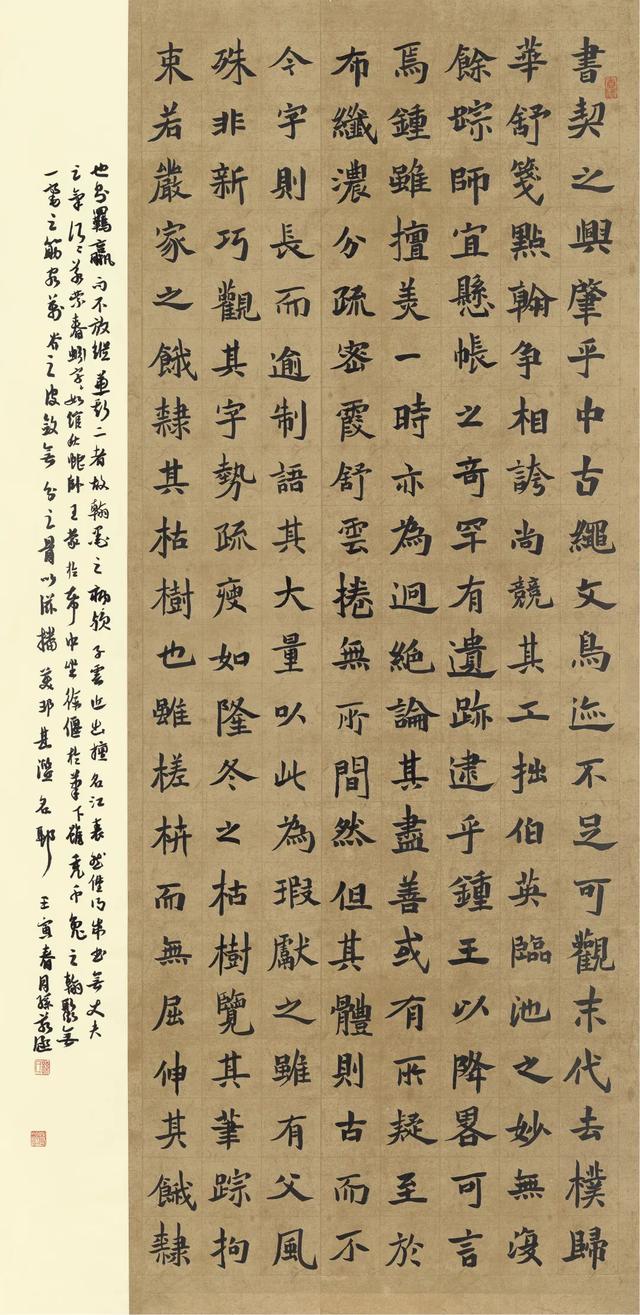 書契之興肇乎中古繩文鳥迹不足可觀末代去樸歸
華舒箋點翰争相誇尚競其工拙伯英臨池之妙無復
餘踪師宜懸帳之奇罕有遺跡逮乎鍾王以降畧可言
焉鍾雖擅美一時亦為迥絶論其盡善或有所疑至於
布纖濃分疏密霞舒雲捲無所間然但其體則古而不
今字則長而逾制語其大量以此為瑕獻之雖有父風
殊非新巧觀其字勢疏瘦如隆冬之枯樹覽其筆踪拘
束若嚴家之餓隸其枯樹也雖槎枿而無屈伸其餓隸
也則羈羸而不放縱兼斯二者故翰墨之病歟子雲近出擅名江表然僅得成書無丈夫
之氣行行若縈春蚓字字如綰秋蛇卧王蒙於帋中坐徐偃於筆下雖禿千兔之翰聚無
一毫之筋窮萬谷之皮斂無分之骨以茲播美其濫名耶 壬寅春月孫